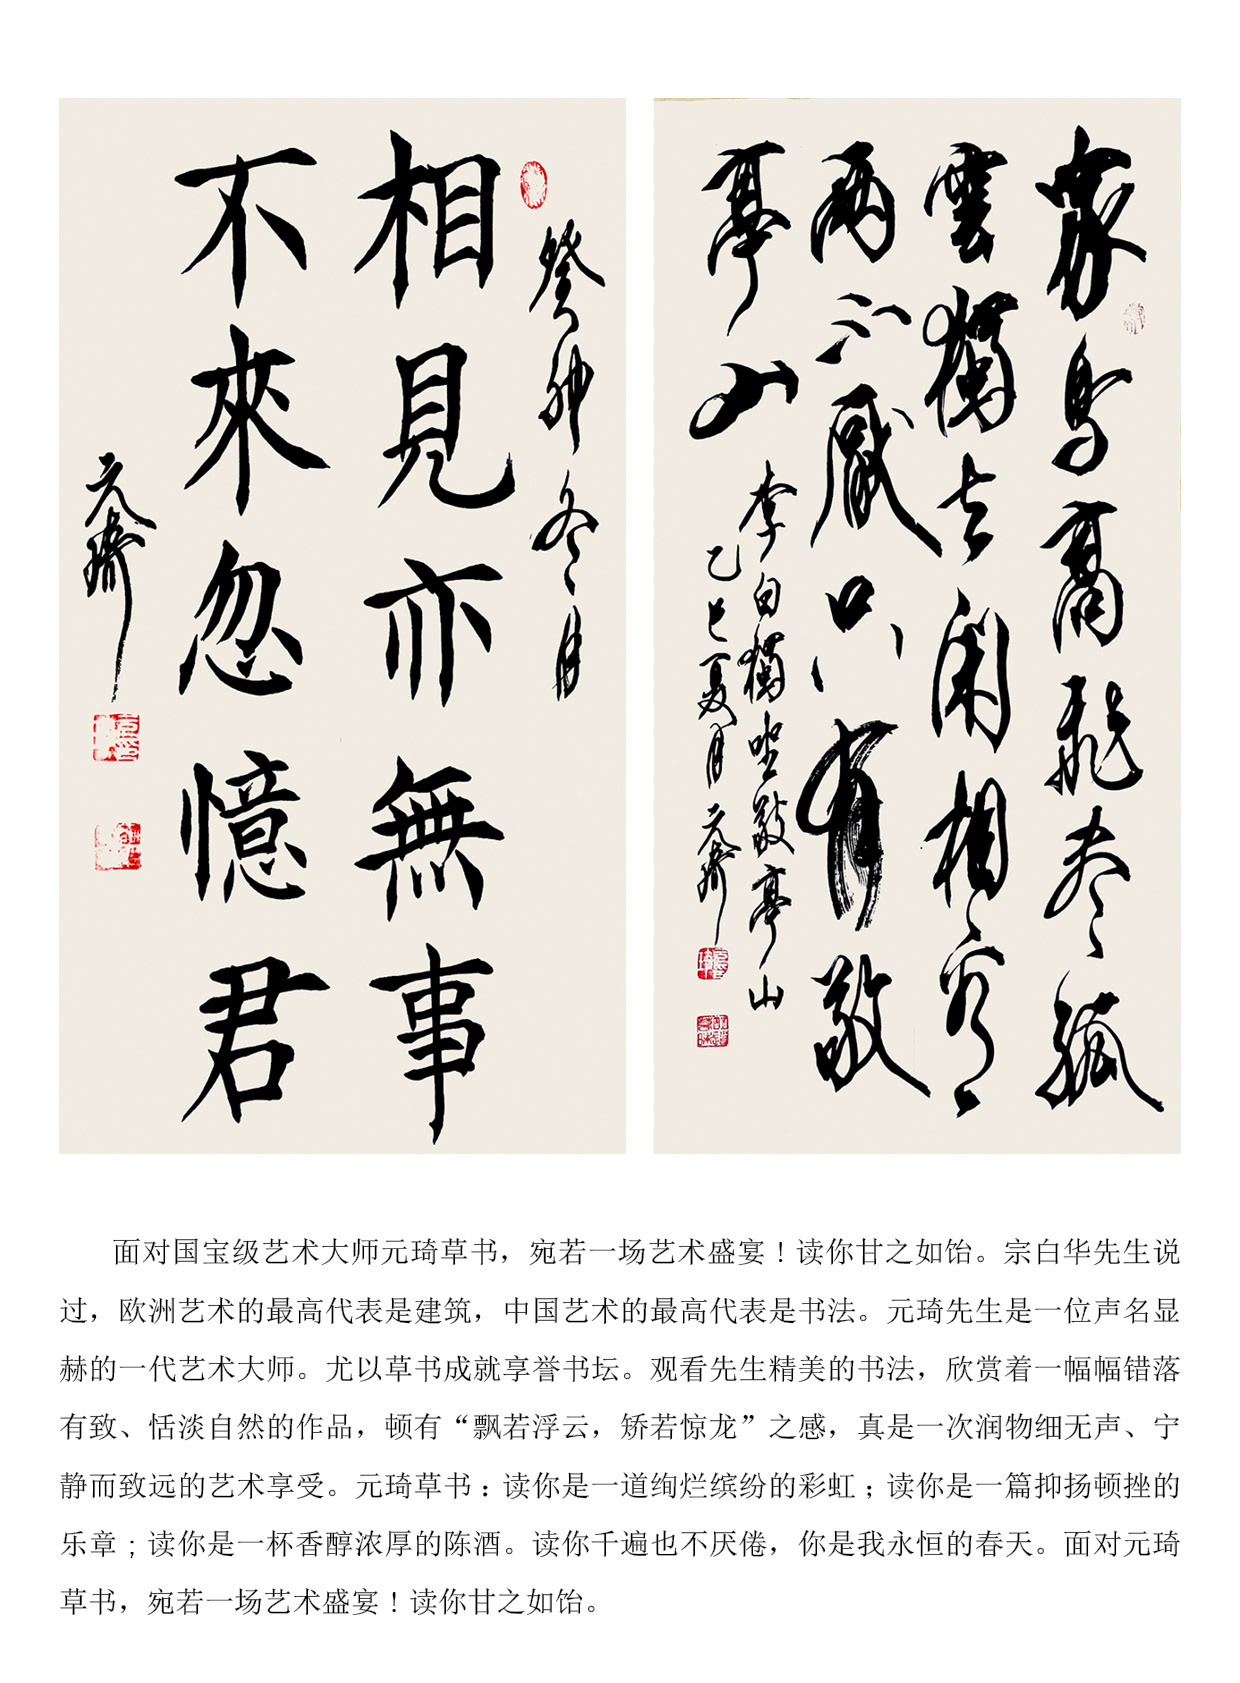 癸卯冬月
相見亦無事
不來忽憶君
元琦
衆鳥高飛盡孤
雲獨去閑相看
兩不厭只有敬
亭山
李白獨坐敬亭山
乙巳夏月元琦
面对国宝级艺术大师元琦草书，宛若一场艺术盛宴！读你甘之如饴。宗白华先生说
过，欧洲艺术的最高代表是建筑，中国艺术的最高代表是书法。元琦先生是一位声名显
赫的一代艺术大师。尤以草书成就享誉书坛。观看先生精美的书法，欣赏着一幅幅错落
有致、恬淡自然的作品，顿有“飘若浮云，矫若惊龙”之感，真是一次润物细无声、宁
静而致远的艺术享受。元琦草书：读你是一道绚烂缤纷的彩虹；读你是一篇抑扬顿挫的
乐章；读你是一杯香醇浓厚的陈酒。读你千遍也不厌倦，你是我永恒的春天。面对元琦
草书，宛若一场艺术盛宴！读你甘之如饴。